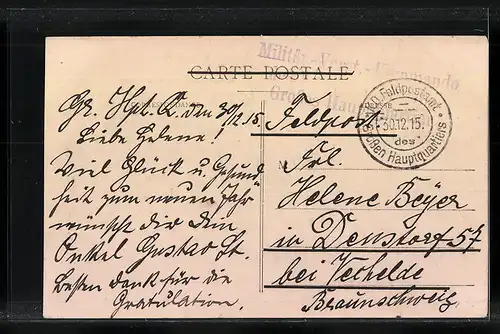 CARTE POSTALE
Militär-Forst-Kommando
Großes Hau
Kais. Feldpostamt
30.12.15.
des
Großen Hauptquartiers
Gr. Hpt. Q. den 30/12.15
Liebe Helene!
Viel Glück u. Gesund
heit zum neuen Jahr
wünscht dir dein
Onkel Gustav St.
Besten Dank für die
Gratulation.
Feldpost.
M
Frl.
Helene Beyer
in Denstorf 57
bei Vechelde
Braunschweig